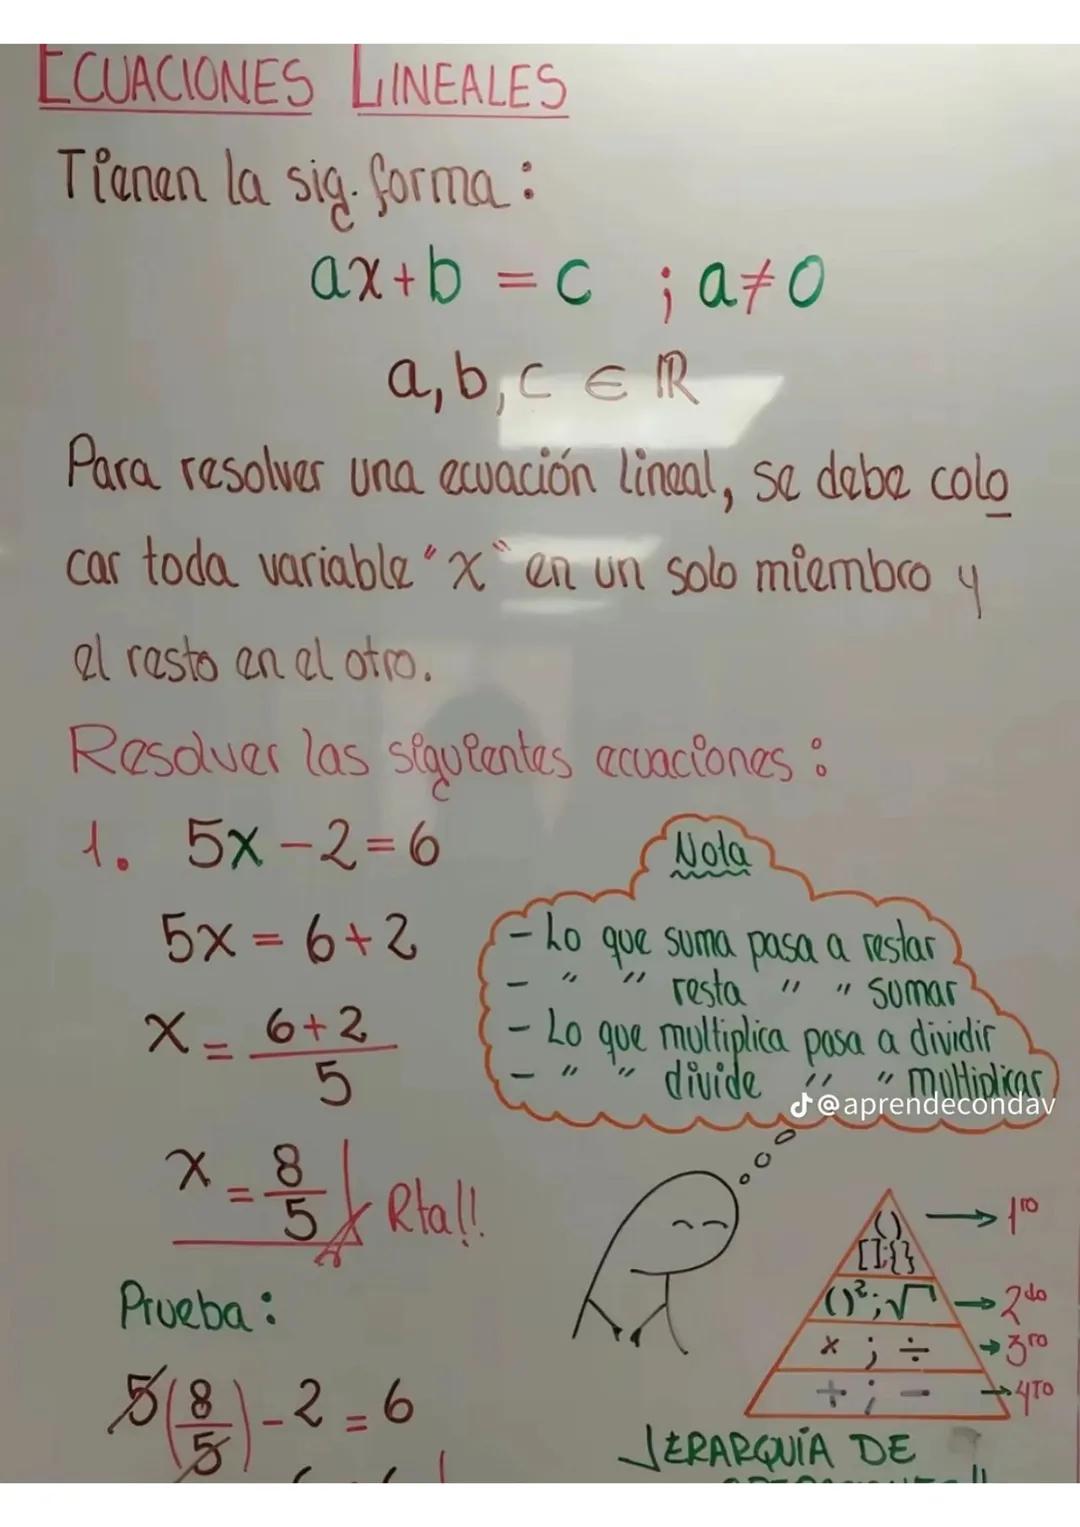 ECUACIONES LINEALES
Tienen la sig. forma :
ax+b = c ; a≠0
a, b, c ∈ ℝ
Para resolver una ecuación lineal, se debe colo
car toda variable "x" en un solo miembro y
el resto en el otro.
Resolver las siguientes ecuaciones :
1. 5x - 2 = 6
5x = 6+2
x = 6+2
5
x = 8
5
Rta!!
Prueba :
5(8/5) - 2 = 6
Nota
- Lo que suma pasa a restar
- " " resta " " sumar
- Lo que multiplica pasa a dividir
- " " divide " " multiplicar
@aprendecondav
() → 1ro
[];{}
()²;√ → 2do
× ; ÷ → 3ro
+ ; - → 4TO
JERARQUÍA DE